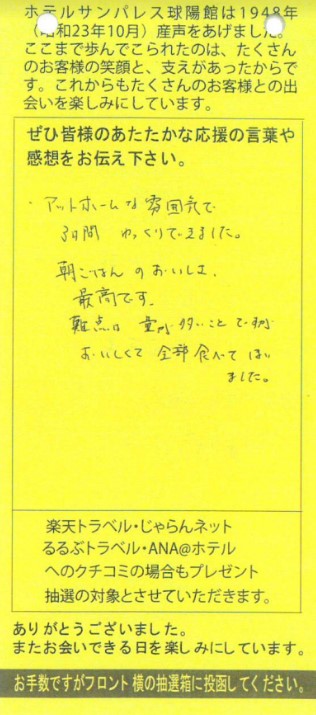 ホテルサンパレス球陽館は1948年
（昭和23年10月）産声をあげました。
ここまで歩んでこられたのは、たくさん
のお客様の笑顔と、支えがあったからで
す。これからもたくさんのお客様との出
会いを楽しみにしています。
ぜひ皆様のあたたかな応援の言葉や
感想をお伝え下さい。
・アットホームな雰囲気で
3日間 ゆっくりできました。
朝ごはんのおいしさ、
最高です。
難点は 量が多いことですが
おいしくて 全部食べてしまい
ました。
楽天トラベル・じゃらんネット
るるぶトラベル・ANA@ホテル
へのクチコミの場合もプレゼント
抽選の対象とさせていただきます。
ありがとうございました。
またお会いできる日を楽しみにしています。
お手数ですがフロント横の抽選箱に投函してください。